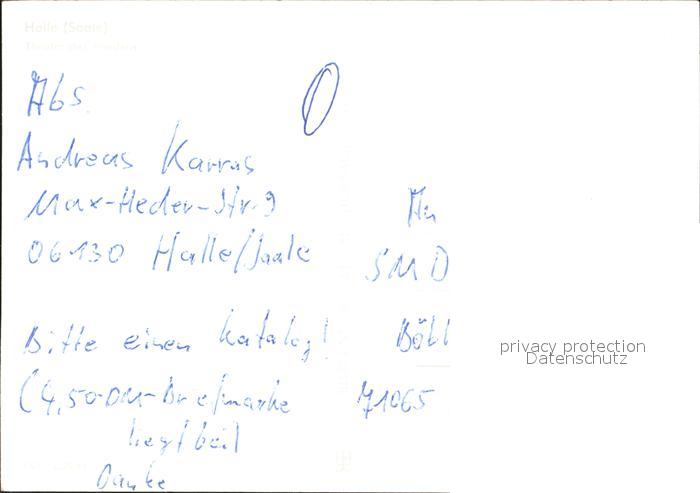 Halle (Saale)
Theater des Friedens
Abs.
Andreas Karras
Max-Heder-Str. 9
06130 Halle/Saale
Bitte einen Katalog!
(4,50-DM-Briefmarke
liegt bei)
Danke
An
SMD
Böbl
71065
privacy protection
Datenschutz